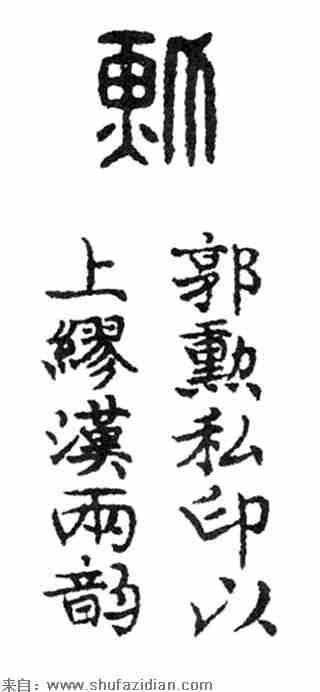 勳
郭勲私印以
上繆漢兩韵
来自：www.shufazidian.com